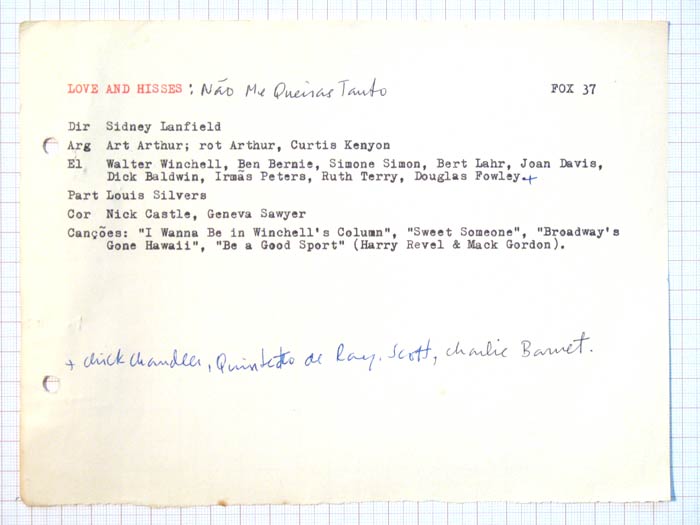 LOVE AND HISSES: Não Me Queiras Tanto FOX 37
Dir Sidney Lanfield
Arg Art Arthur; rot Arthur, Curtis Kenyon
El Walter Winchell, Ben Bernie, Simone Simon, Bert Lahr, Joan Davis,
Dick Baldwin, Irmãs Peters, Ruth Terry, Douglas Fowley +
Part Louis Silvers
Cor Nick Castle, Geneva Sawyer
Canções: "I Wanna Be in Winchell's Column", "Sweet Someone", "Broadway's
Gone Hawaii", "Be a Good Sport" (Harry Revel & Mack Gordon).
+ Chick Chandler, Quinteto de Ray. Scott, Charlie Barnet.